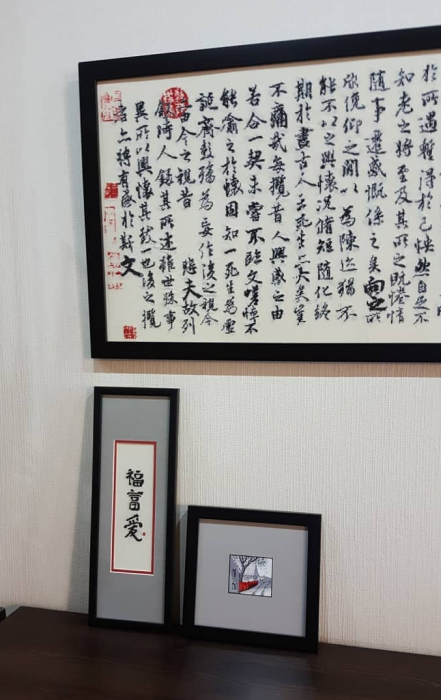 於所遇蹔得於己怏然自足不
知老之將至及其所之既惓情
隨事遷感慨係之矣向之所
欣俛仰之閒以為陳迹猶不
能不以之興懷況脩短隨化終
期於盡古人云死生亦大矣豈
不痛哉每攬昔人興感之由
若合一契未嘗不臨文嗟悼不
能喻之於懷固知一死生為虛
誕齊彭殤為妄作後之視今
由今之視昔 悲夫故列
敘時人錄其所述雖世殊事
異所以興懷其致一也後之攬
者亦將有感於斯文
福富愛